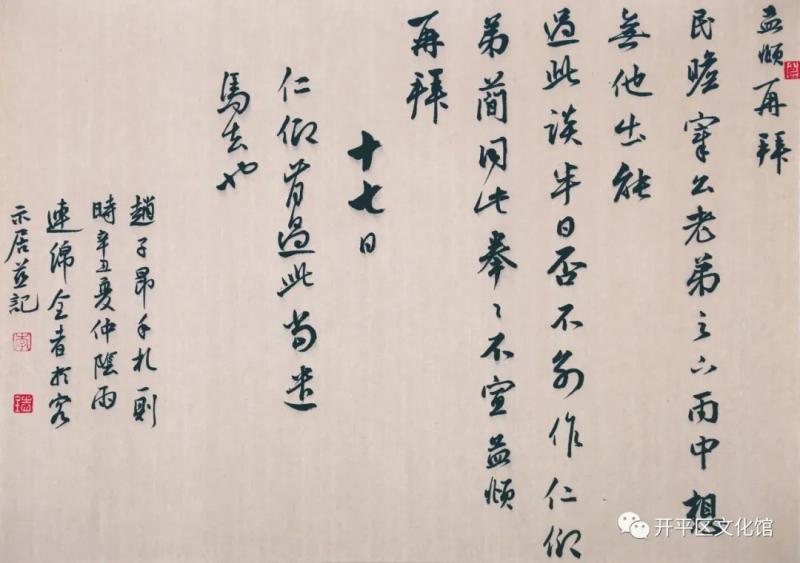 孟頫再拜
民瞻宰公老弟足下雨中想
無他出能
過此談半日否不別作仁卿
弟簡同此拳〻不宣孟頫
再拜
十七日
仁卿肯過此當遣
馬去也
趙子昂手札一則
時辛丑夏仲陰雨
連綿於
示居並記
开平区文化馆